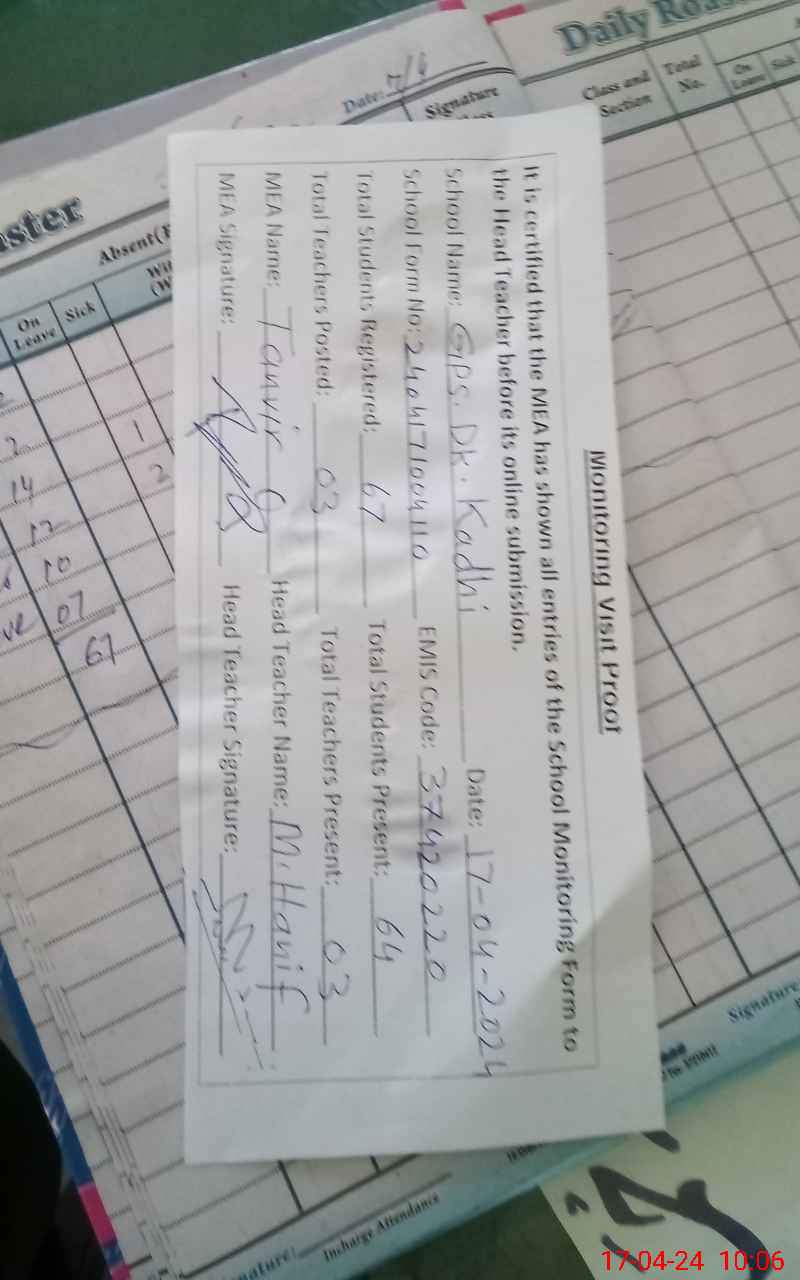 Monitoring Visit Proof
It is certified that the MEA has shown all entries of the School Monitoring Form to
the Head Teacher before its online submission.
School Name: GPS. DK. Kadhi Date: 17-04-2024
School Form No: 2404171004110 EMIS Code: 37420220
Total Students Registered: 67 Total Students Present: 64
Total Teachers Posted: 03 Total Teachers Present: 03
MEA Name: Tanvir Head Teacher Name: M. Hanif
MEA Signature: Head Teacher Signature:
Date:
Signature
Absent
On Leave
Sick
1
2
14
12
10
07
67
Daily
Class and Section
Total No.
On Leave
Sick
Signature
Incharge Attendance
17-04-24 10:06